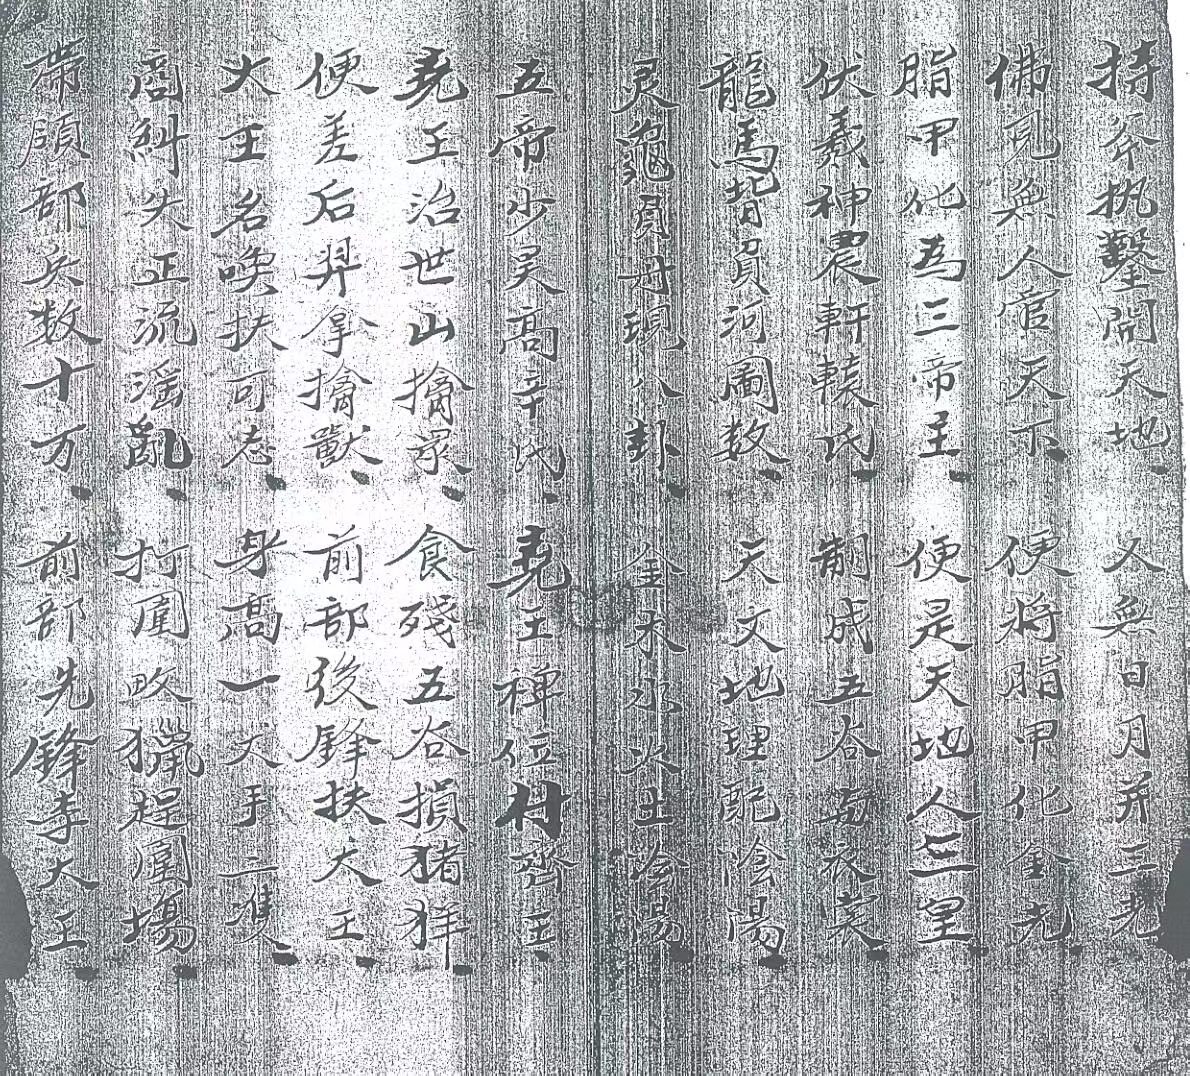 持斧执鑿開天地、又無日月并三光
佛見無人管天下、便将脂甲化金光、
脂甲化為三帝王、便是天地人三皇、
伏羲神農軒轅氏、制成五谷衣裳、
龍馬背負河圖数、天文地理配陰陽、
灵龜負丹現八卦、金木水火土陰陽、
五帝少昊高辛氏、堯王禅位付齊王、
堯王治世山擒眾、食殘五谷損猪羊、
便差后羿拿擒獸、前部後鋒扶大王、
大王名唤扶可志、身高一丈手二雙、
商糾失正流滛亂、打圍畋獵趕圍場、
帶領部兵数十万、前部先鋒李大王、